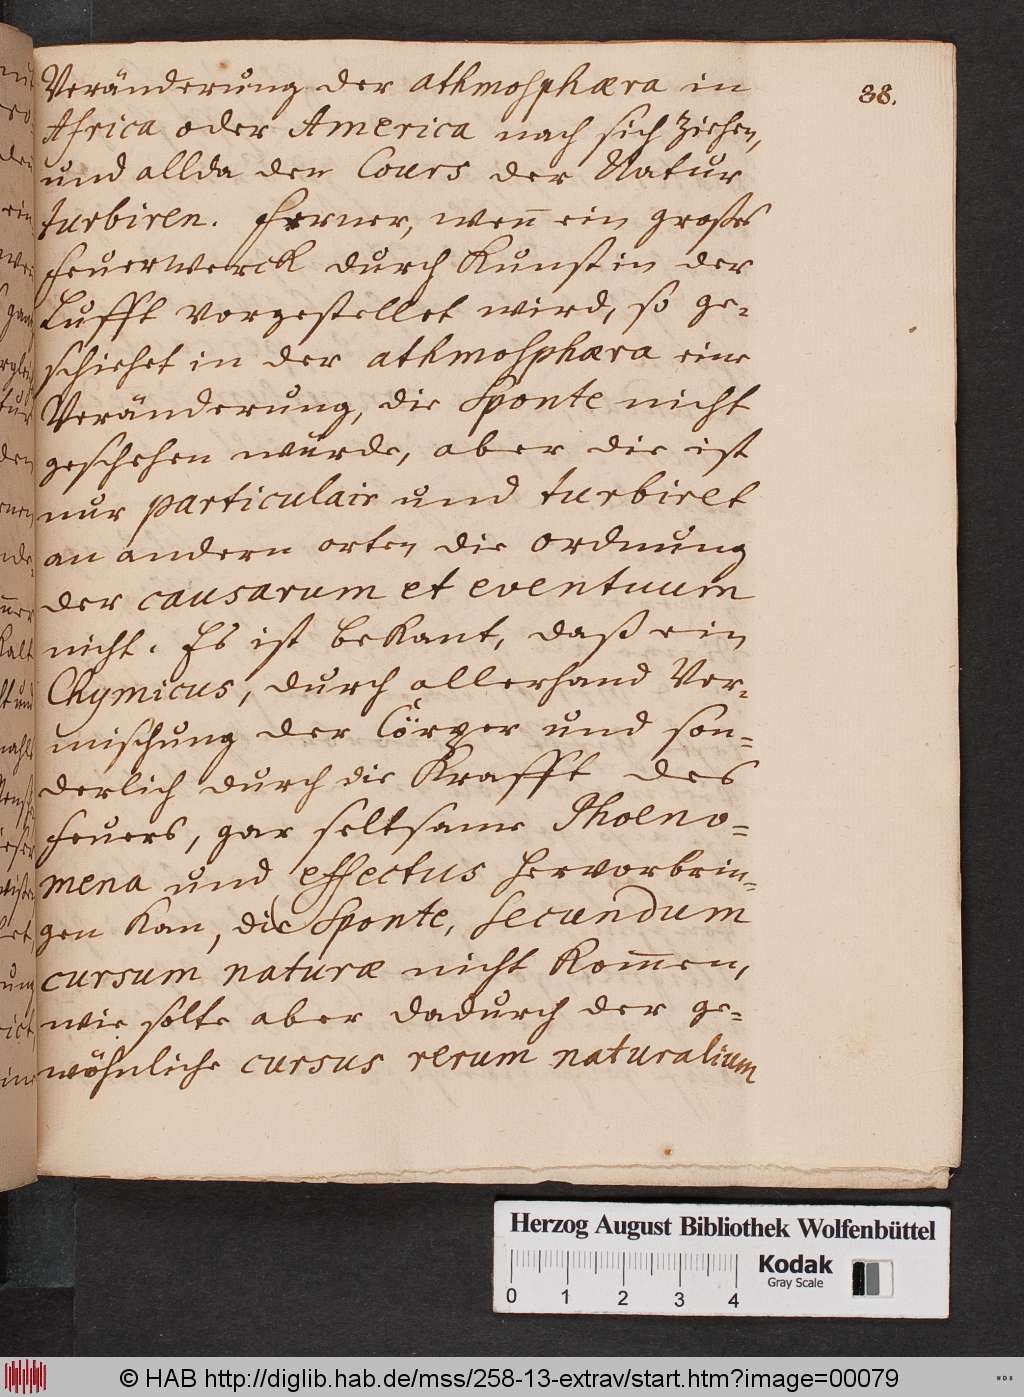 38.
Veränderung der athmosphæra in
Africa oder America nach sich ziehen,
und allda den Cours der Natur
turbiren. Ferner, weñ ein großes
Feuerwerck durch Kunst in der
Lufft vorgestellet wird, so ge-
schiehet in der athmosphæra eine
Veränderung, die Sponte nicht
geschehen würde, aber die ist
nur particulair und turbiret
an andern orten die ordnung
der causarum et eventuum
nicht. Es ist bekant, daß ein
Chymicus, durch allerhand Ver-
mischung der Cörper und son-
derlich durch die Krafft des
Feuers, gar seltsame Phoeno-
mena und effectus hervorbrin-
gen kan, die Sponte, secundum
cursum naturæ nicht kom̄en,
wie solte aber dadurch der ge-
wöhnliche cursus rerum naturalium
Herzog August Bibliothek Wolfenbüttel
Kodak
Gray Scale
0 1 2 3 4
© HAB http://diglib.hab.de/mss/258-13-extrav/start.htm?image=00079